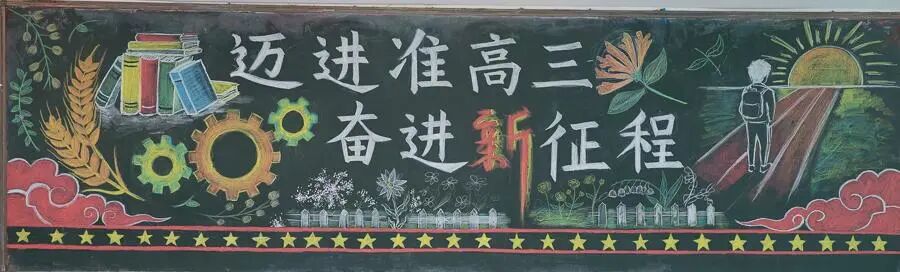 迈进准高三
奋进新征程